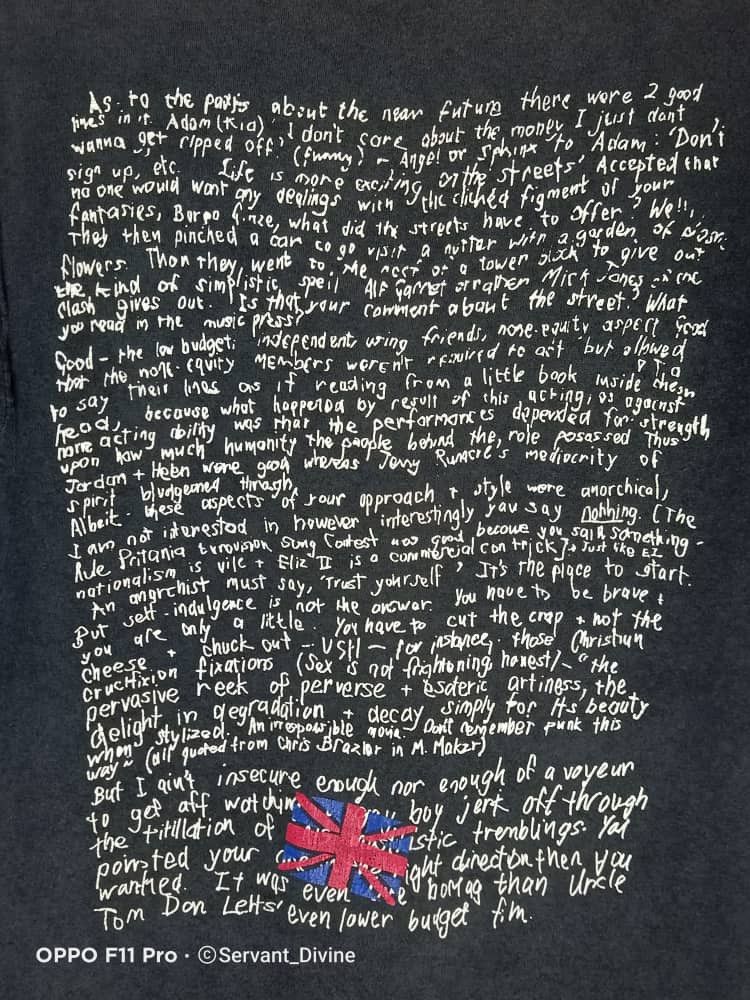 As to the parts about the near future there were 2 good
lines in it. Adam (Kid) 'I don't care about the money I just dont
wanna get ripped off.' (funny) - Angel or Sphinx to Adam: 'Don't
sign up, etc. Life is more exciting on the streets' Accepted that
no one would want any dealings with the clichéd figment of your
fantasies, Ginze, what did the streets have to offer? We'll,
They then pinched a car to go visit a nutter with a garden of
flowers. Then they went to the roof of a tower block to give out
the kind of simplistic speil Alf Garnet or rather Mick Jones of the
Clash gives out. Is that your comment about the street? What
you read in the music press?
Good - the low budget, independent, using friends, none-equity aspect. Good
that the none-equity MEMBERS weren't required to act but allowed
to say their lines as if reading from a little book inside their
head, because what happened by result of this acting, as against
more acting ability was that the performances depended for strength
upon how much humanity the people behind the role posassed Thus
Jordan + were good whereas Jenny Runacre's mediocrity of
spirit bludgeoned through
Albeit these aspects of your approach + style were anorchical,
I am not interested in however interestingly you say nothing. (The
Rule Pritania Eurovision Song Contest was good becouse you said something -
nationalism is vile + Eliz II is a commercial con trick) + Just like EI
An angrchist must say, 'Trust yourself', It's the place to start.
But self-indulgence is not the answer. You have to be brave +
you are only a little. You have to cut the crap + not the
cheese + chuck out - USH - for instance, those Christiun
crucifixion fixations (Sex is not frightoning honest) - "the
pervasive reek of perverse + esoteric artiness, the
delight in degradation + decay simply for its beauty
when stylized. An irresponsible movie. Don't remember punk this
way" (all quoted from Chris Brazier in M. Maker)
But I ain't insecure enough nor enough of a voyeur
to get off watchin boy jerk off through
the titillation of tremblings. You
pointed your right direction then you
wanted. It was even than Uncle
Tom Don Letts' even lower budget fim.
OPPO F11 Pro · ©Servant_Divine